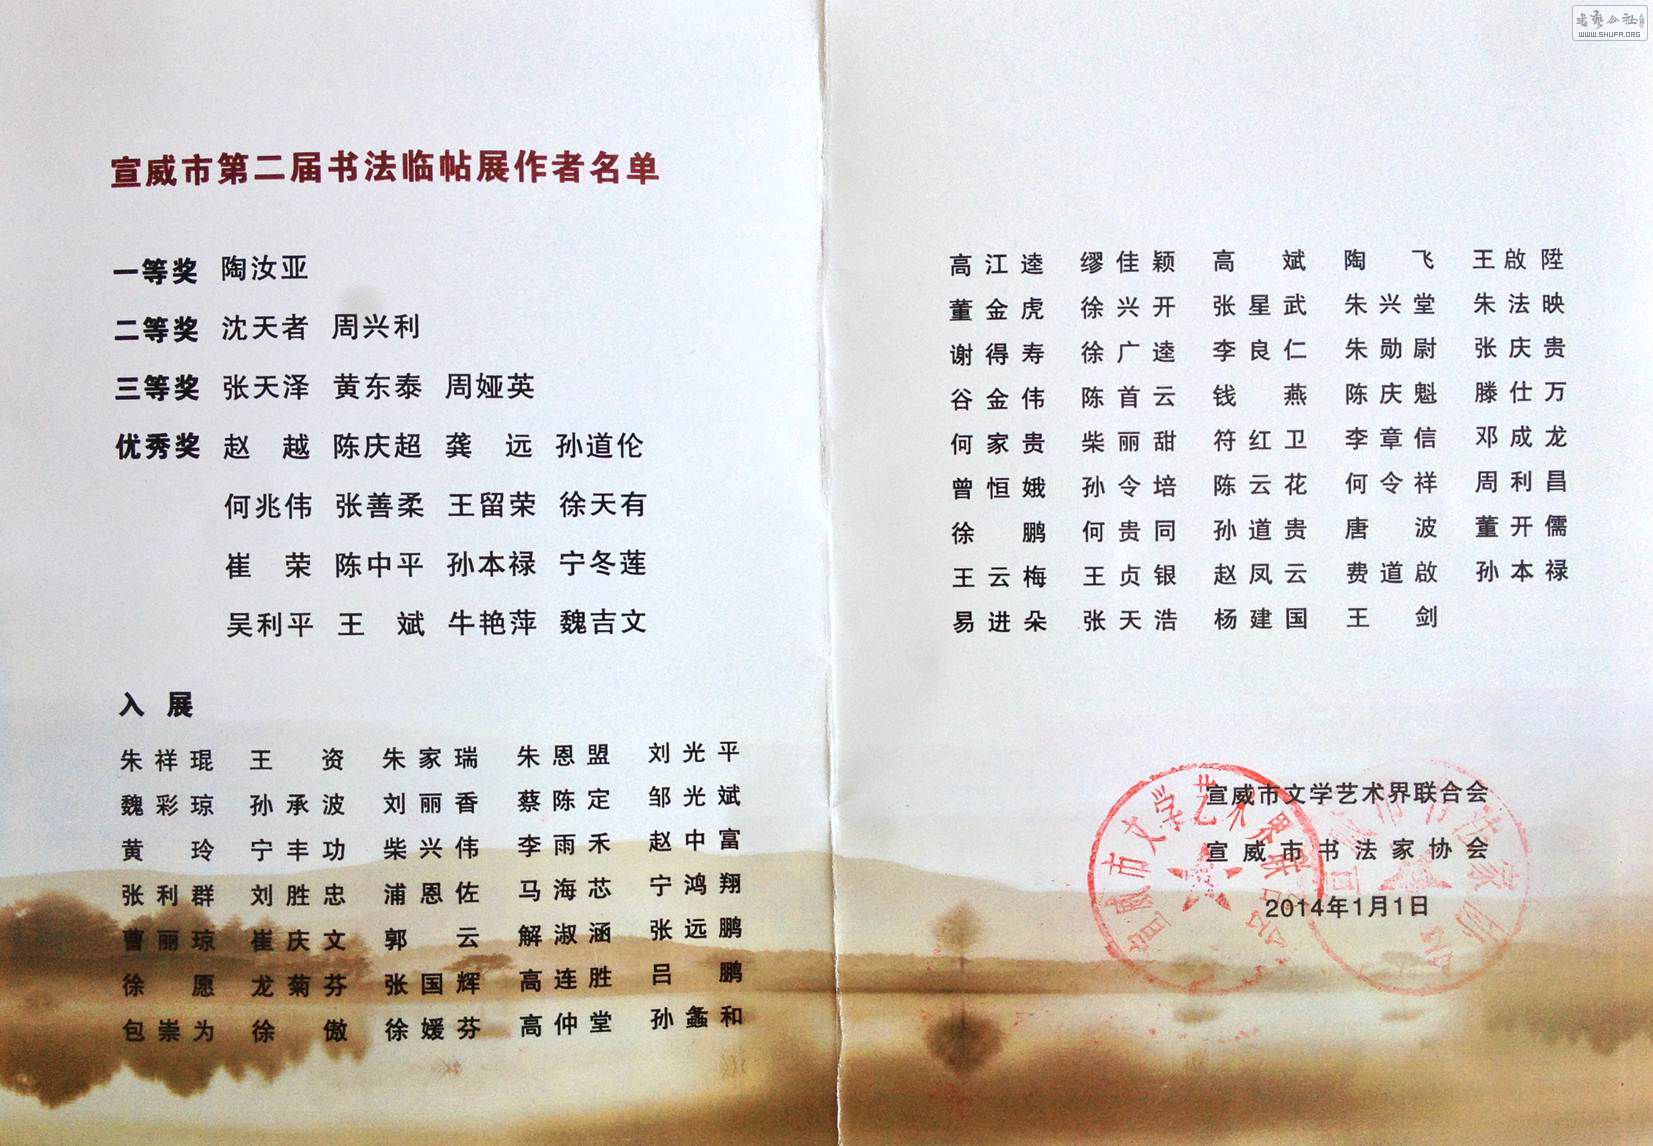 宣威市第二届书法临帖展作者名单
一等奖 陶汝亚
二等奖 沈天者 周兴利
三等奖 张天泽 黄东泰 周娅英
优秀奖 赵越 陈庆超 龚远 孙道伦
何兆伟 张善柔 王留荣 徐天有
崔荣 陈中平 孙本禄 宁冬莲
吴利平 王斌 牛艳萍 魏吉文
入展
朱祥琨 王资 朱家瑞 朱恩盟 刘光平
魏彩琼 孙承波 刘丽香 蔡陈定 邹光斌
黄玲 宁丰功 柴兴伟 李雨禾 赵中富
张利群 刘胜忠 浦恩佐 马海芯 宁鸿翔
曹丽琼 崔庆文 郭云 解淑涵 张远鹏
徐愿 龙菊芬 张国辉 高连胜 吕鹏
包崇为 徐傲 徐媛芬 高仲堂 孙螽和
高江逵 缪佳颖 高斌 陶飞 王啟陞
董金虎 徐兴开 张星武 朱兴堂 朱法映
谢得寿 徐广逵 李良仁 朱勋尉 张庆贵
谷金伟 陈首云 钱燕 陈庆魁 滕仕万
何家贵 柴丽甜 符红卫 李章信 邓成龙
曾恒娥 孙令培 陈云花 何令祥 周利昌
徐鹏 何贵同 孙道贵 唐波 董开儒
王云梅 王贞银 赵凤云 费道啟 孙本禄
易进朵 张天浩 杨建国 王剑
宣威市文学艺术界联合会
宣威市书法家协会
2014年1月1日
宣威市文学艺术界联合会
WWW.SHUFA.ORG